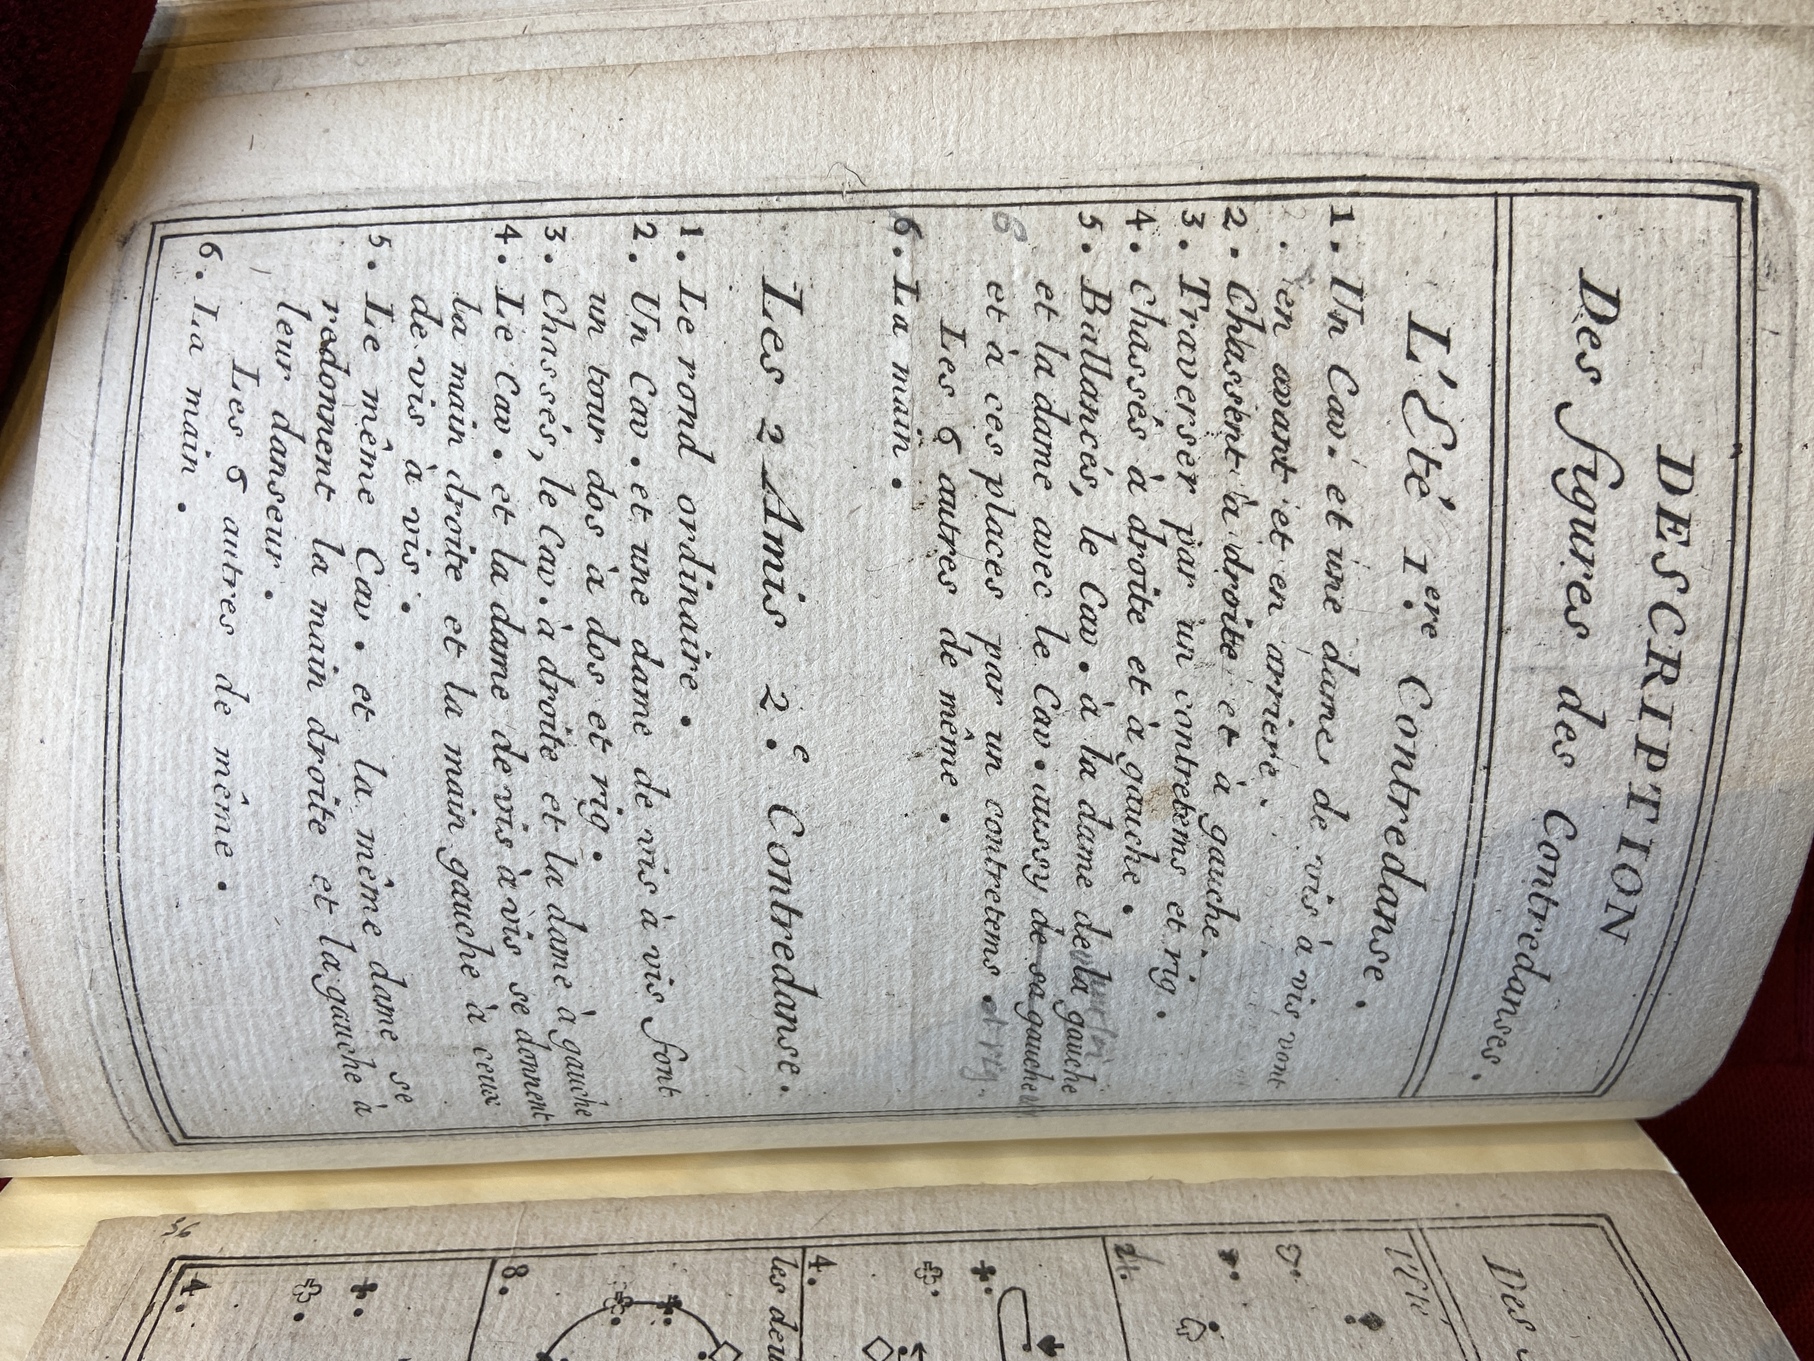 DESCRIPTION
Des figures des Contredanses.
L'Eté 1.ere Contredanse.
1. Un Cav. et une dame de vis à vis vont
en avant et en arriere.
2. Chassent à droite et à gauche.
3. Traverser par un contretems et rig.
4. chassés à droite et à gauche.
5. Ballancés, le Cav. à la dame de la gauche
et la dame avec le Cav. aussy de sa gauche
6 et à ces places par un contretems et rig.
Les 6 autres de même.
6. La main.
Les 2 Amis 2.e Contredanse.
1. Le rond ordinaire.
2. Un Cav. et une dame de vis à vis font
un tour dos à dos et rig.
3. Chassés, le Cav. à droite et la dame à gauche
4. Le Cav. et la dame de vis à vis se donnent
la main droite et la main gauche à ceux
de vis à vis.
5. Le même Cav. et la même dame se
redonnent la main droite et la gauche à
leur danseur.
Les 6 autres de même.
6. La main.
Des
l'Eté
2.
4.
les deux
8.
4.